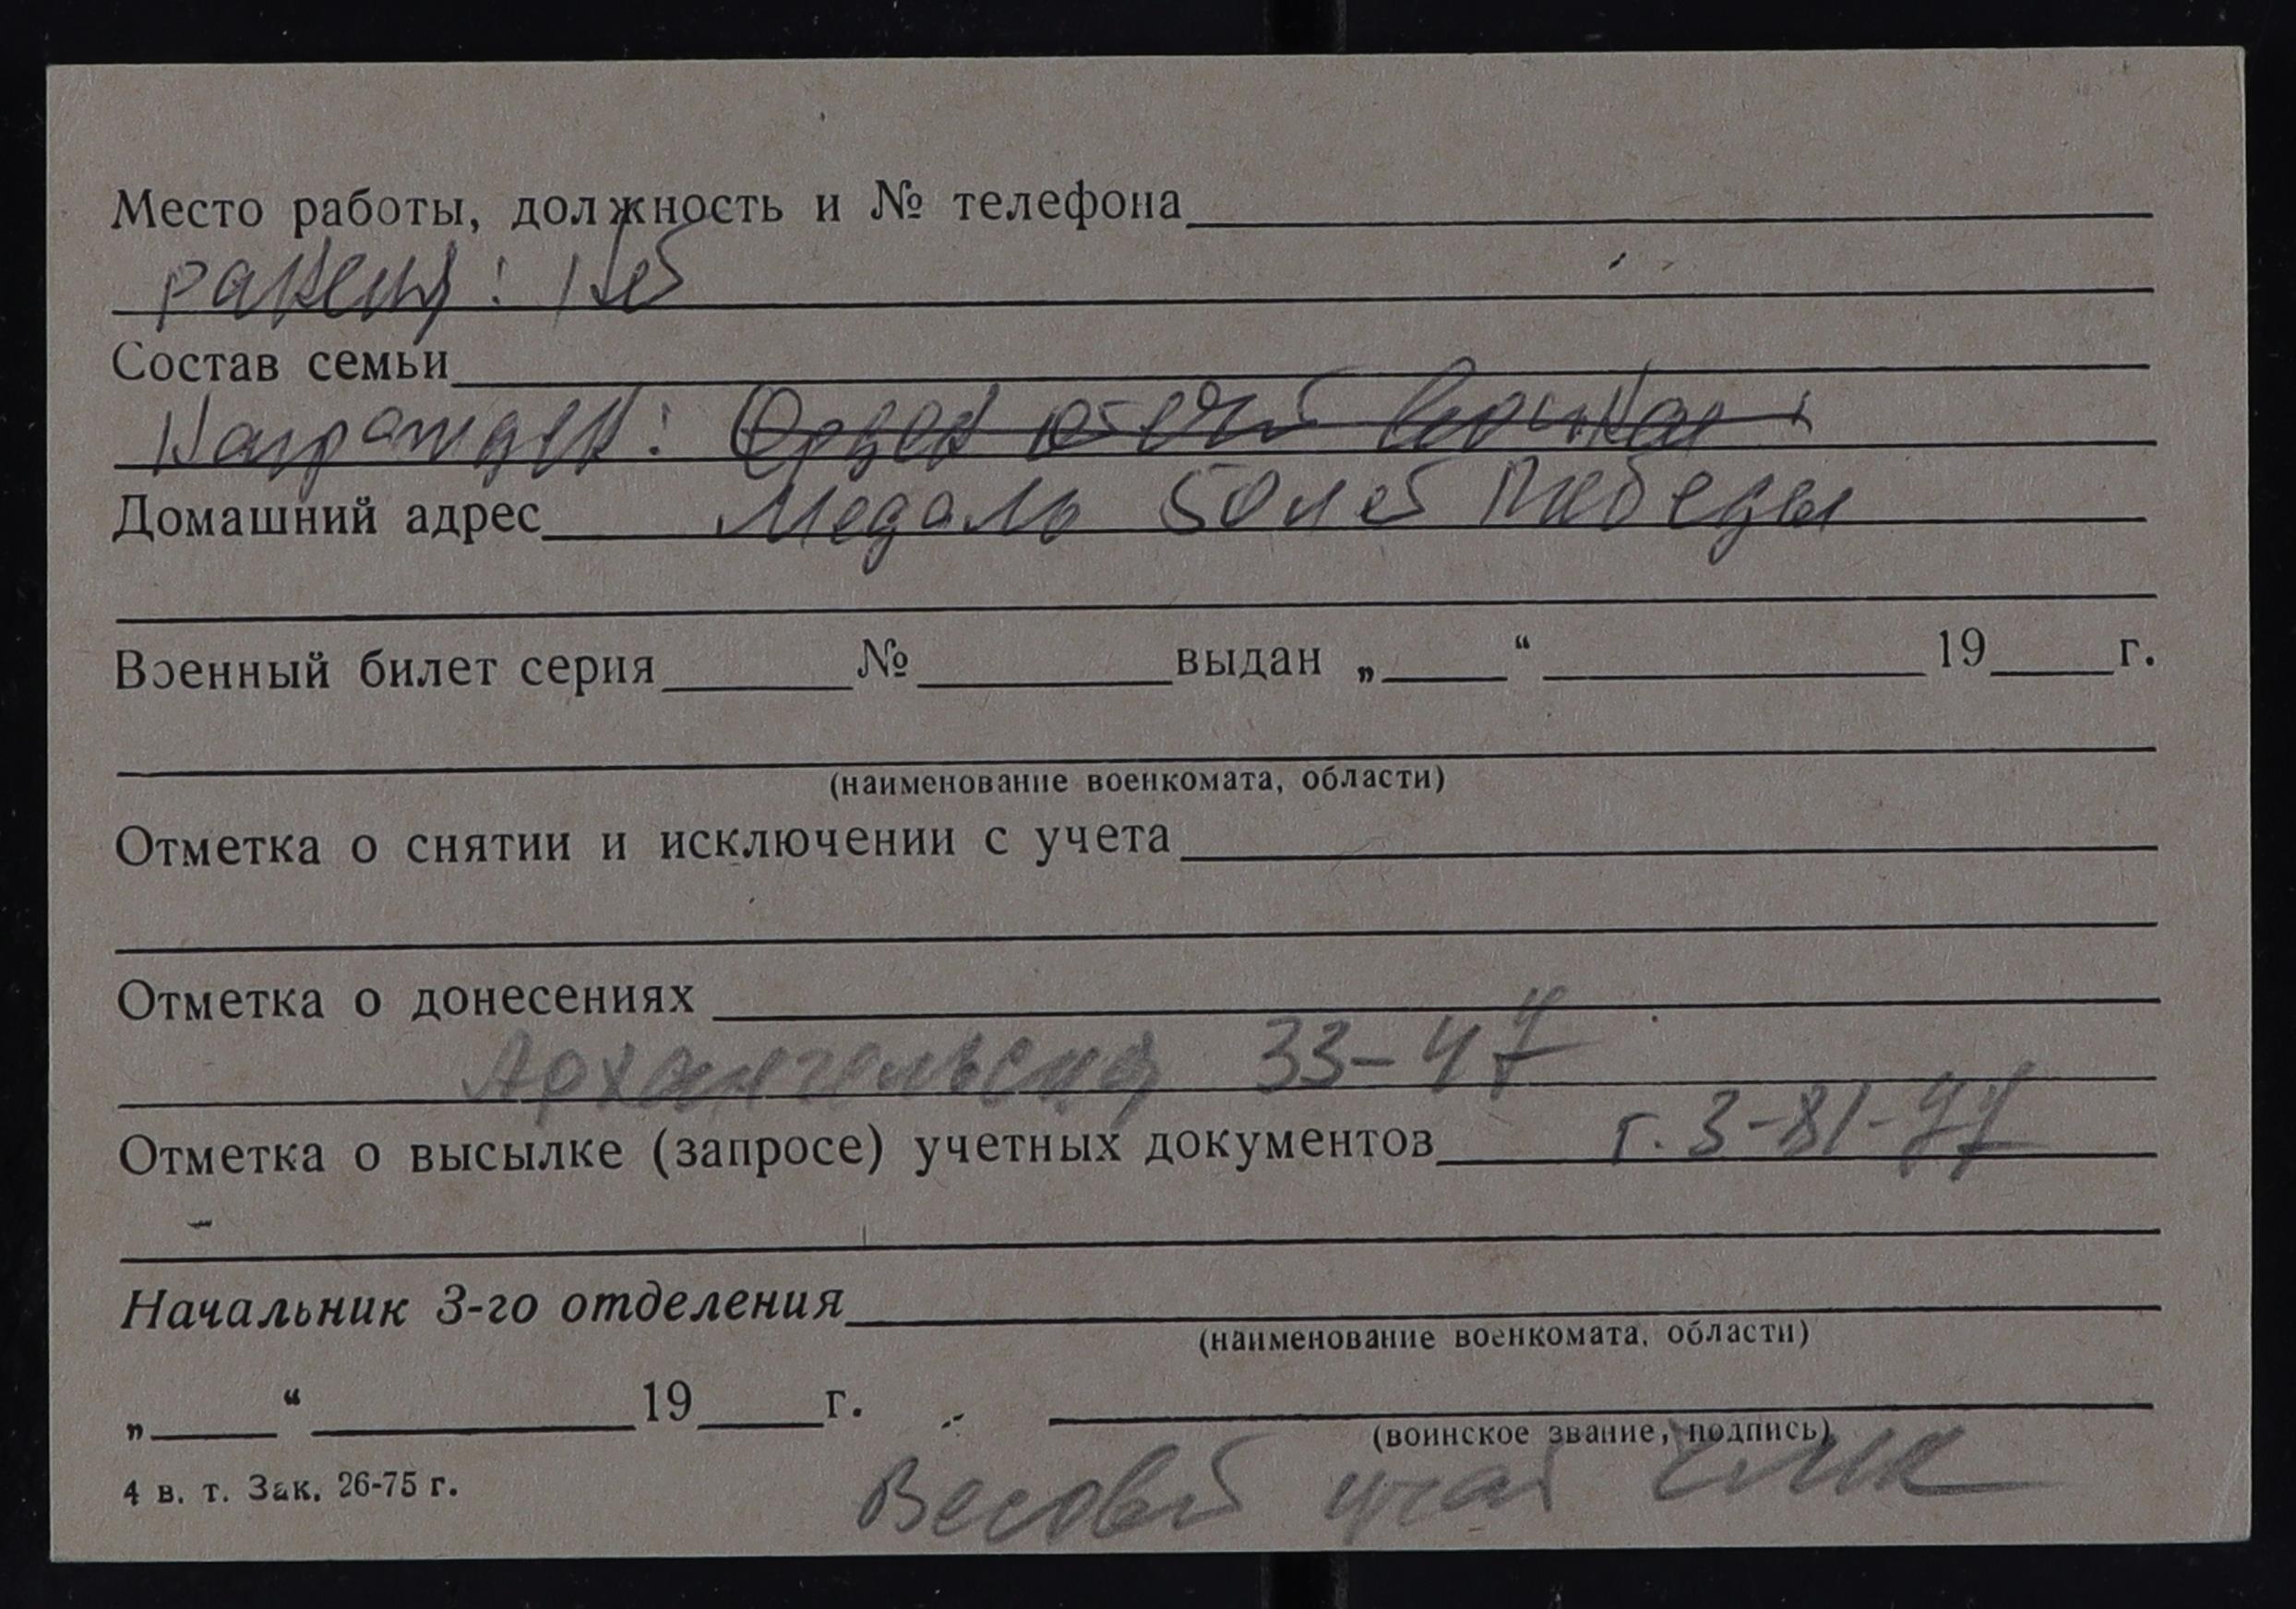 Место работы, должность и № телефона
ранений: Нет
Состав семьи
Награжден: Орден отеч войны
Домашний адрес Медаль 50 лет Победы
Военный билет серия № выдан „ “ 19 г.
(наименование военкомата, области)
Отметка о снятии и исключении с учета
Отметка о донесениях
Архангельская 33-47
Отметка о высылке (запросе) учетных документов т. 3-81-77
Начальник 3-го отделения
(наименование военкомата, области)
„ “ 19 г.
(воинское звание, подпись)
4 в. т. Зак. 26-75 г.
Весовой